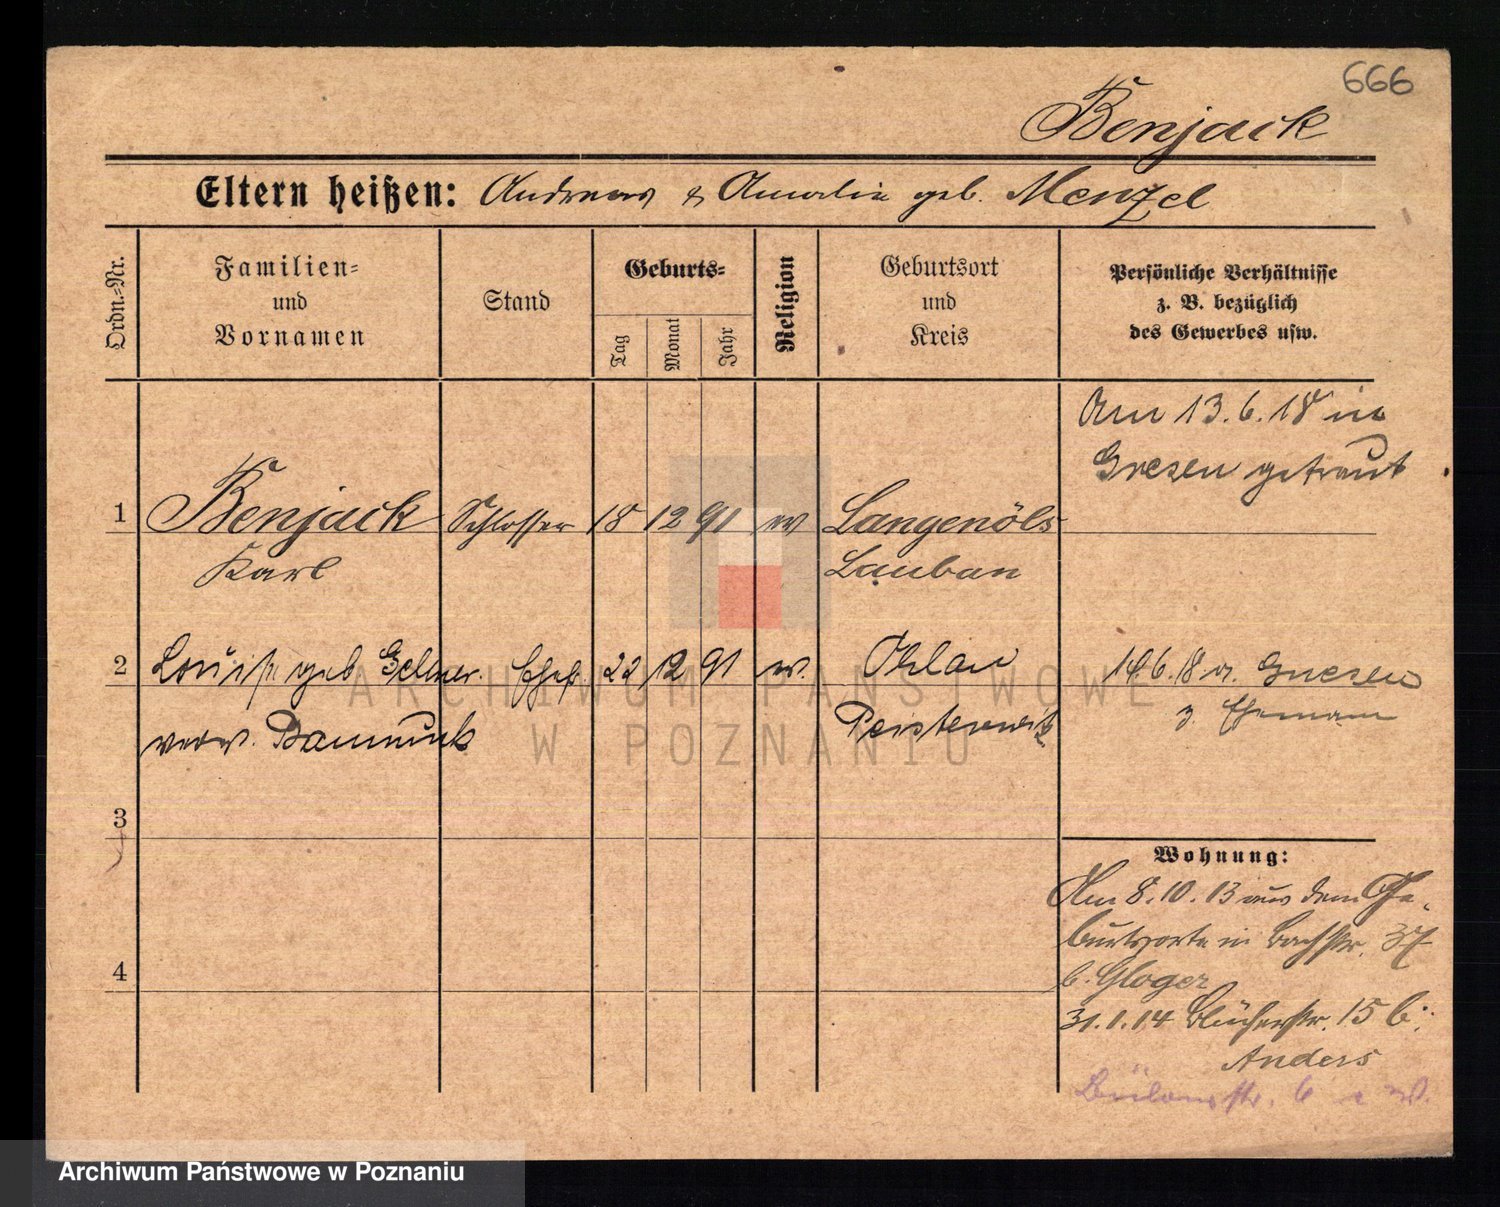 666
Benjack
Eltern heißen: Andreas & Amalie geb. Menzel
Ordn.-Nr.
Familien-
und
Vornamen
Stand
Geburts-
Tag
Monat
Jahr
Religion
Geburtsort
und
Kreis
Persönliche Verhältnisse
z. B. bezüglich
des Gewerbes usw.
Am 13.6.18 in
Gnesen getraut
1 Benjack Schlosser 18 12 91 ev Langenöls
Karl Lauban
2 Louise geb Gellner. Ehefr. 22 12 91 ev. Ohlau 14.6.18 v. Gnesen
verw. Peisterwitz z. Ehemann
3
4
Wohnung:
Am 8.10.13 aus dem Ge-
burtsorte in Bachstr. 37
b. Gloger
31.1.14 Blücherstr. 15 b:
Anders
Bülowstr. 6
ARCHIWUM PAŃSTWOWE
W POZNANIU
Archiwum Państwowe w Poznaniu